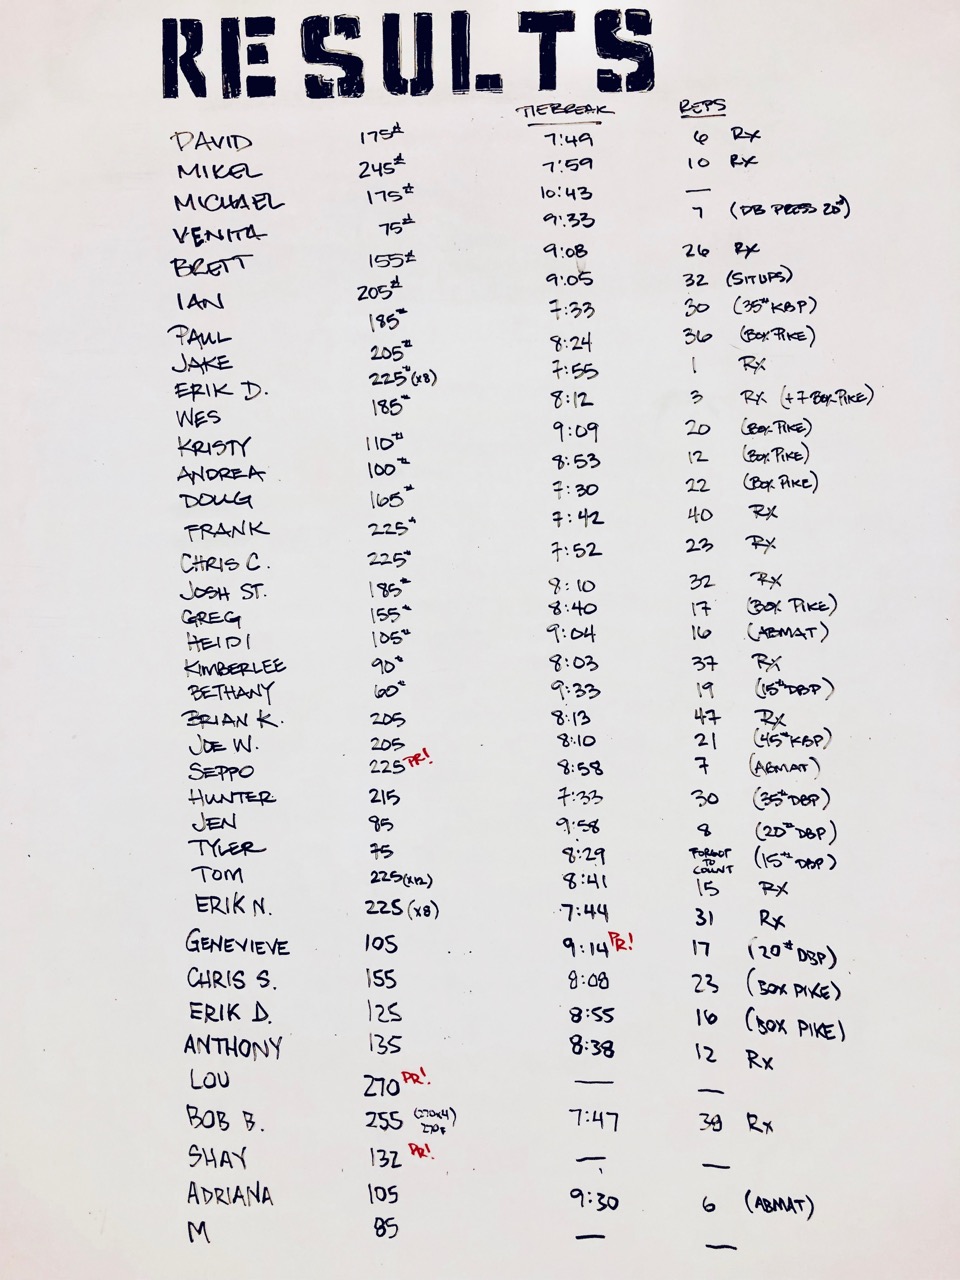 RESULTS
TIEBREAK REPS
DAVID 175# 7:49 6 Rx
MIKEL 245# 7:59 10 Rx
MICHAEL 175# 10:43 —
VENITA 75# 9:33 7 (DB PRESS 20#)
BRETT 155# 9:08 26 Rx
IAN 205# 9:05 32 (SITUPS)
PAUL 185# 7:33 30 (35# KBP)
JAKE 205# 8:24 36 (BOX PIKE)
ERIK D. 225# (x8) 7:55 1 Rx
WES 185# 8:12 3 Rx (+7 BOX PIKE)
KRISTY 110# 9:09 20 (BOX PIKE)
ANDREA 100# 8:53 12 (BOX PIKE)
DOUG 165# 7:30 22 (BOX PIKE)
FRANK 225# 7:42 40 Rx
CHRIS C. 225# 7:52 23 Rx
JOSH ST. 185# 8:10 32 Rx
GREG 155# 8:40 17 (BOX PIKE)
HEIDI 105# 9:04 16 (ABMAT)
KIMBERLEE 90# 8:03 37 Rx
BETHANY 60# 9:33 19 (15# DBP)
BRIAN K. 205 8:13 47 Rx
JOE W. 205 8:10 21 (45# KBP)
SEPPO 225 PR! 8:58 7 (ABMAT)
HUNTER 215 7:33 30 (35# DBP)
JEN 85 9:58 8 (20# DBP)
TYLER 75 8:29 FORGOT TO COUNT (15# DBP)
TOM 225 (x12) 8:41 15 Rx
ERIK N. 225 (x8) 7:44 31 Rx
GENEVIEVE 105 9:14 PR! 17 (20# DBP)
CHRIS S. 155 8:08 23 (BOX PIKE)
ERIK D. 125 8:55 16 (BOX PIKE)
ANTHONY 135 8:38 12 Rx
LOU 270 PR! — —
BOB B. 255 (270x4) 7:47 39 Rx
SHAY 132 PR! — —
ADRIANA 105 9:30 6 (ABMAT)
M 85 — —